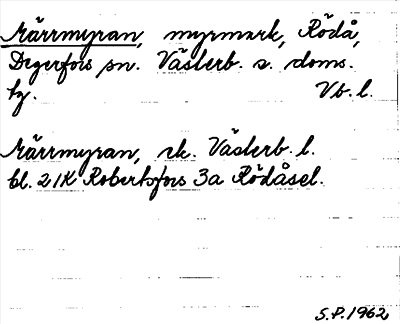 Märrmyran, myrmark, Rödå,
Degerfors sn. Västerb. s. doms.
hg. Vb. l.
Märrmyran, ek. Västerb. l.
bl. 21K Robertsfors 3a Rödåsel.
S.P. 1962